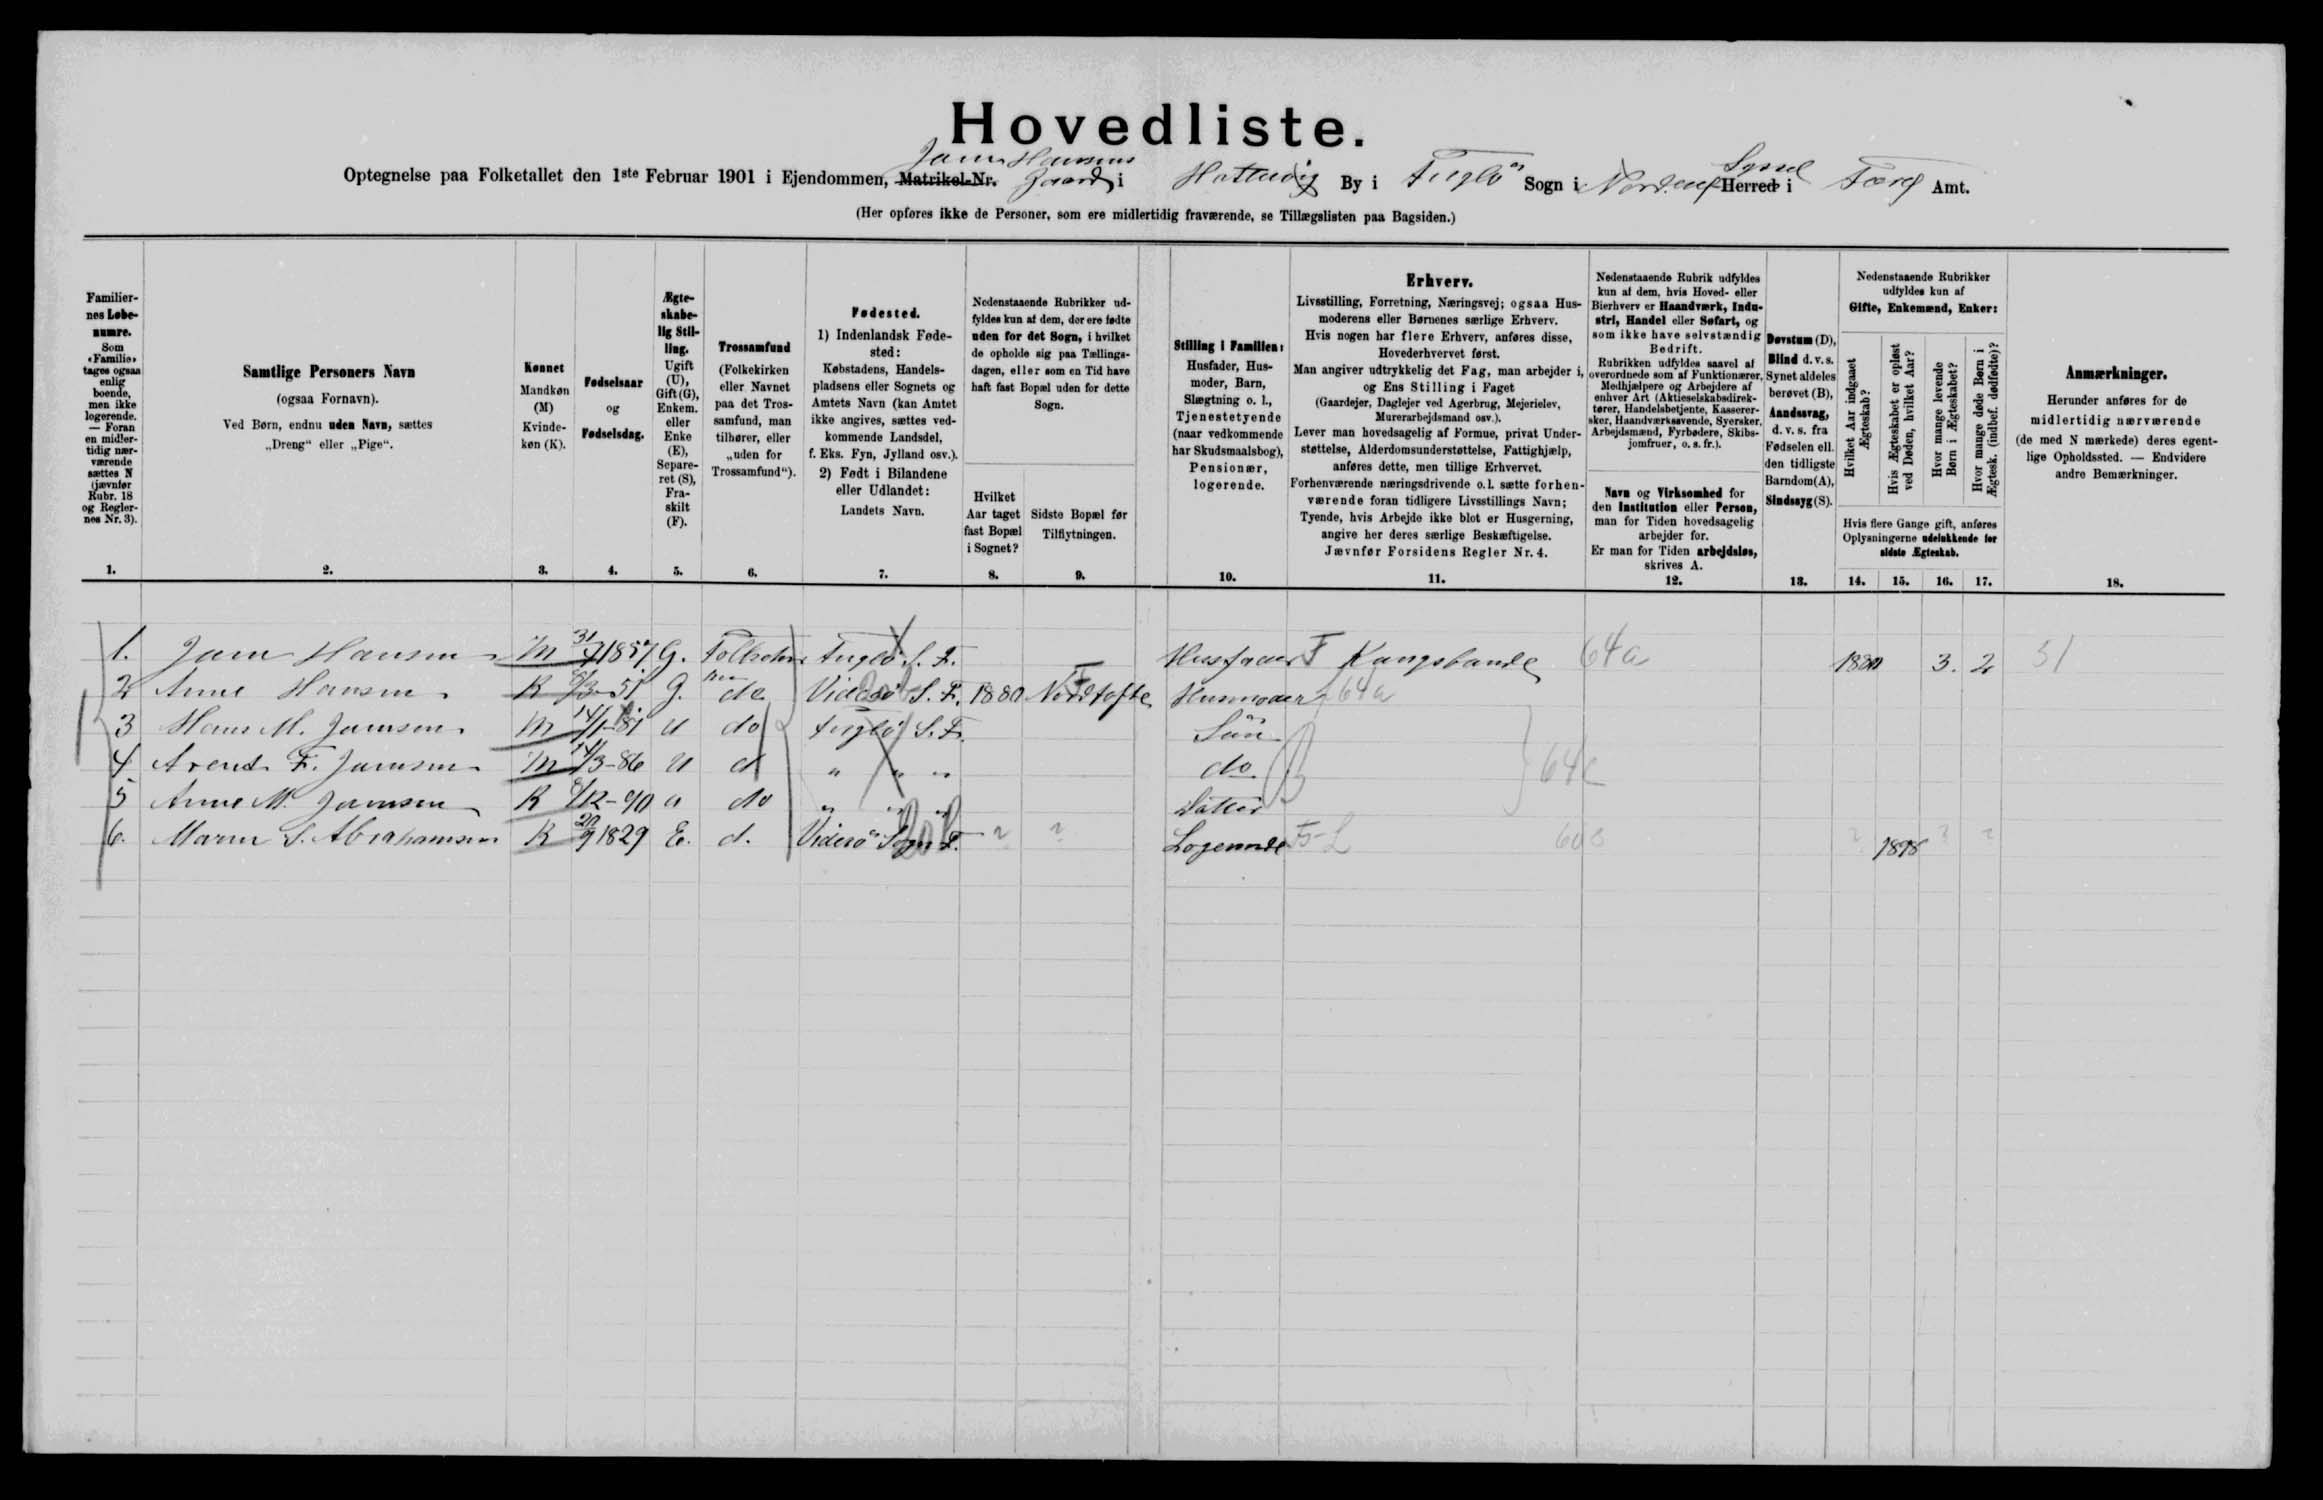 Hovedliste.
Optegnelse paa Folketallet den 1ste Februar 1901 i Ejendommen, Matrikel-Nr. Jarn Hansens Gaard i Hattervig By i Fuglö Sogn i Norderø Herred Syssel i Færø Amt.
(Her opføres ikke de Personer, som ere midlertidig fraværende, se Tillægslisten paa Bagsiden.)
Familiernes Løbenumre.
Som «Familie» tages ogsaa enlig boende, men ikke logerende. — Foran en midlertidig nærværende sættes N (jævnfør Rubr. 18 og Reglernes Nr. 3).
Samtlige Personers Navn
(ogsaa Fornavn).
Ved Børn, endnu uden Navn, sættes
„Dreng“ eller „Pige“.
Kønnet
Mandkøn (M)
Kvindekøn (K).
Fødselsaar
og
Fødselsdag.
Ægteskabelig Stilling.
Ugift (U), Gift (G), Enkem. eller Enke (E), Separeret (S), Fraskilt (F).
Trossamfund
(Folkekirken eller Navnet paa det Trossamfund, man tilhører, eller „uden for Trossamfund“).
Fødested.
1) Indenlandsk Fødested:
Købstadens, Handelspladsens eller Sognets og Amtets Navn (kan Amtet ikke angives, sættes vedkommende Landsdel, f. Eks. Fyn, Jylland osv.).
2) Født i Bilandene eller Udlandet:
Landets Navn.
Nedenstaaende Rubrikker udfyldes kun af dem, der ere fødte uden for det Sogn, i hvilket de opholde sig paa Tællingsdagen, eller som en Tid have haft fast Bopæl uden for dette Sogn.
Hvilket Aar taget fast Bopæl i Sognet?
Sidste Bopæl før Tilflytningen.
Stilling i Familien:
Husfader, Husmoder, Barn, Slægtning o. l., Tjenestetyende (naar vedkommende har Skudsmaalsbog), Pensionær, logerende.
Erhverv.
Livsstilling, Forretning, Næringsvej; ogsaa Husmoderens eller Børnenes særlige Erhverv.
Hvis nogen har flere Erhverv, anføres disse, Hovederhvervet først.
Man angiver udtrykkelig det Fag, man arbejder i, og Ens Stilling i Faget
(Gaardejer, Daglejer ved Agerbrug, Mejerielev, Murerarbejdsmand osv.).
Lever man hovedsagelig af Formue, privat Understøttelse, Alderdomsunderstøttelse, Fattighjælp, anføres dette, men tillige Erhvervet.
Forhenværende næringsdrivende o. l. sætte forhenværende foran tidligere Livsstillings Navn;
Tyende, hvis Arbejde ikke blot er Husgerning, angive her deres særlige Beskæftigelse.
Jævnfør Forsidens Regler Nr. 4.
Nedenstaaende Rubrik udfyldes kun af dem, hvis Hoved- eller Bierhverv er Haandværk, Industri, Handel eller Søfart, og som ikke have selvstændig Bedrift.
Rubrikken udfyldes saavel af overordnede som af Funktionærer, Medhjælpere og Arbejdere af enhver Art (Aktieselskabsdirektører, Handelsbetjente, Kasserersker, Haandværkssvende, Syersker, Arbejdsmænd, Fyrbødere, Skibsjomfruer, o. s. fr.).
Navn og Virksomhed for den Institution eller Person, man for Tiden hovedsagelig arbejder for.
Er man for Tiden arbejdsløs, skrives A.
Døvstum (D), Blind d. v. s. Synet aldeles berøvet (B), Aandssvag, d. v. s. fra Fødselen ell. den tidligste Barndom (A), Sindssyg (S).
Nedenstaaende Rubrikker udfyldes kun af
Gifte, Enkemænd, Enker:
Hvilket Aar indgaaet Ægteskab?
Hvis Ægteskabet er opløst ved Døden, hvilket Aar?
Hvor mange levende Børn i Ægteskabet?
Hvor mange døde Børn i Ægtesk. (indbef. dødfødte)?
Hvis flere Gange gift, anføres Oplysningerne udelukkende for sidste Ægteskab.
Anmærkninger.
Herunder anføres for de midlertidig nærværende (de med N mærkede) deres egentlige Opholdssted. — Endvidere andre Bemærkninger.
1. 2. 3. 4. 5. 6. 7. 8. 9. 10. 11. 12. 13. 14. 15. 16. 17. 18.
1. Jarn Hansen M 31/7 1857 G. Folkekirken Fuglö S. F. Husfader F Kongsbonde 64a 1880 3. 2 51
2 Anne Hansen K 51 G. do Viderö S. F. 1880 Nordtofte Husmoder 64a
3 Hans M. Jarnsen M 14/1-81 U do Fuglö S. F. Sön
4 Arent F. Jarnsen M 14/3-86 U d " " " do. 64c
5 Anne M. Jarnsen K 8/12-90 u do " " " Datter
6. Maren S. Abrahamsen K 20/9 1829 E. d. Viderö Sogn F. ? ? Logerende F-L ? 1898 ? ?